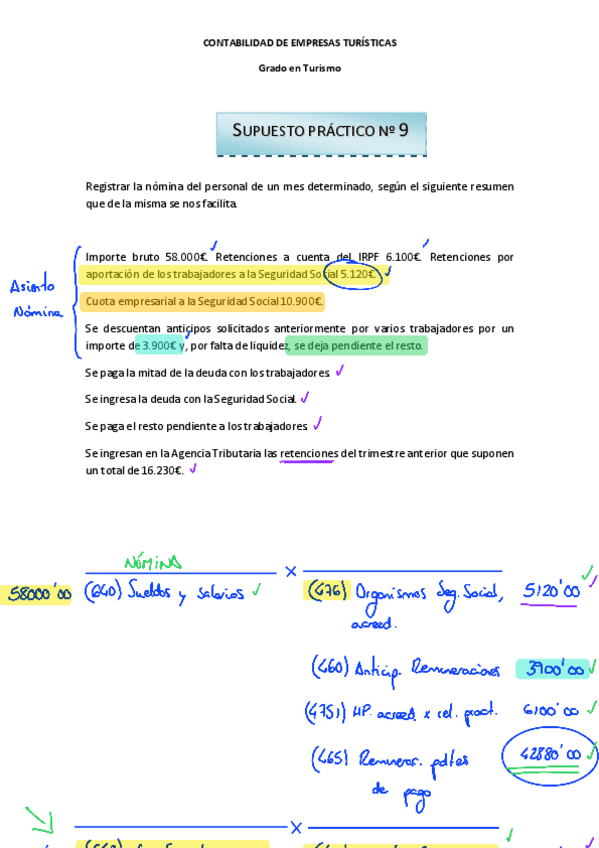 CONTABILIDAD DE EMPRESAS TURÍSTICAS
Grado en Turismo
SUPUESTO PRÁCTICO Nº 9
Registrar la nómina del personal de un mes determinado, según el siguiente resumen
que de la misma se nos facilita.
Importe bruto 58.000€. Retenciones a cuenta del IRPF 6.100€. Retenciones por
aportación de los trabajadores a la Seguridad Social 5.120€.
Asiento
Nómina
Cuota empresarial a la Seguridad Social 10.900€.
Se descuentan anticipos solicitados anteriormente por varios trabajadores por un
importe de 3.900€ y, por falta de liquidez, se deja pendiente el resto.
Se paga la mitad de la deuda con los trabajadores.
Se ingresa la deuda con la Seguridad Social.
Se paga el resto pendiente a los trabajadores.
Se ingresan en la Agencia Tributaria las retenciones del trimestre anterior que suponen
un total de 16.230€.
NÓMINA
58000'00 (640) Sueldos y salarios (476) Organismos Seg. Social, 5120'00
acreed.
(460) Anticip. Remuneraciones 3900'00
(4751) HP. acreed. x ret. pract. 6100'00
(465) Remunerac. pdtes 42880'00
de pago